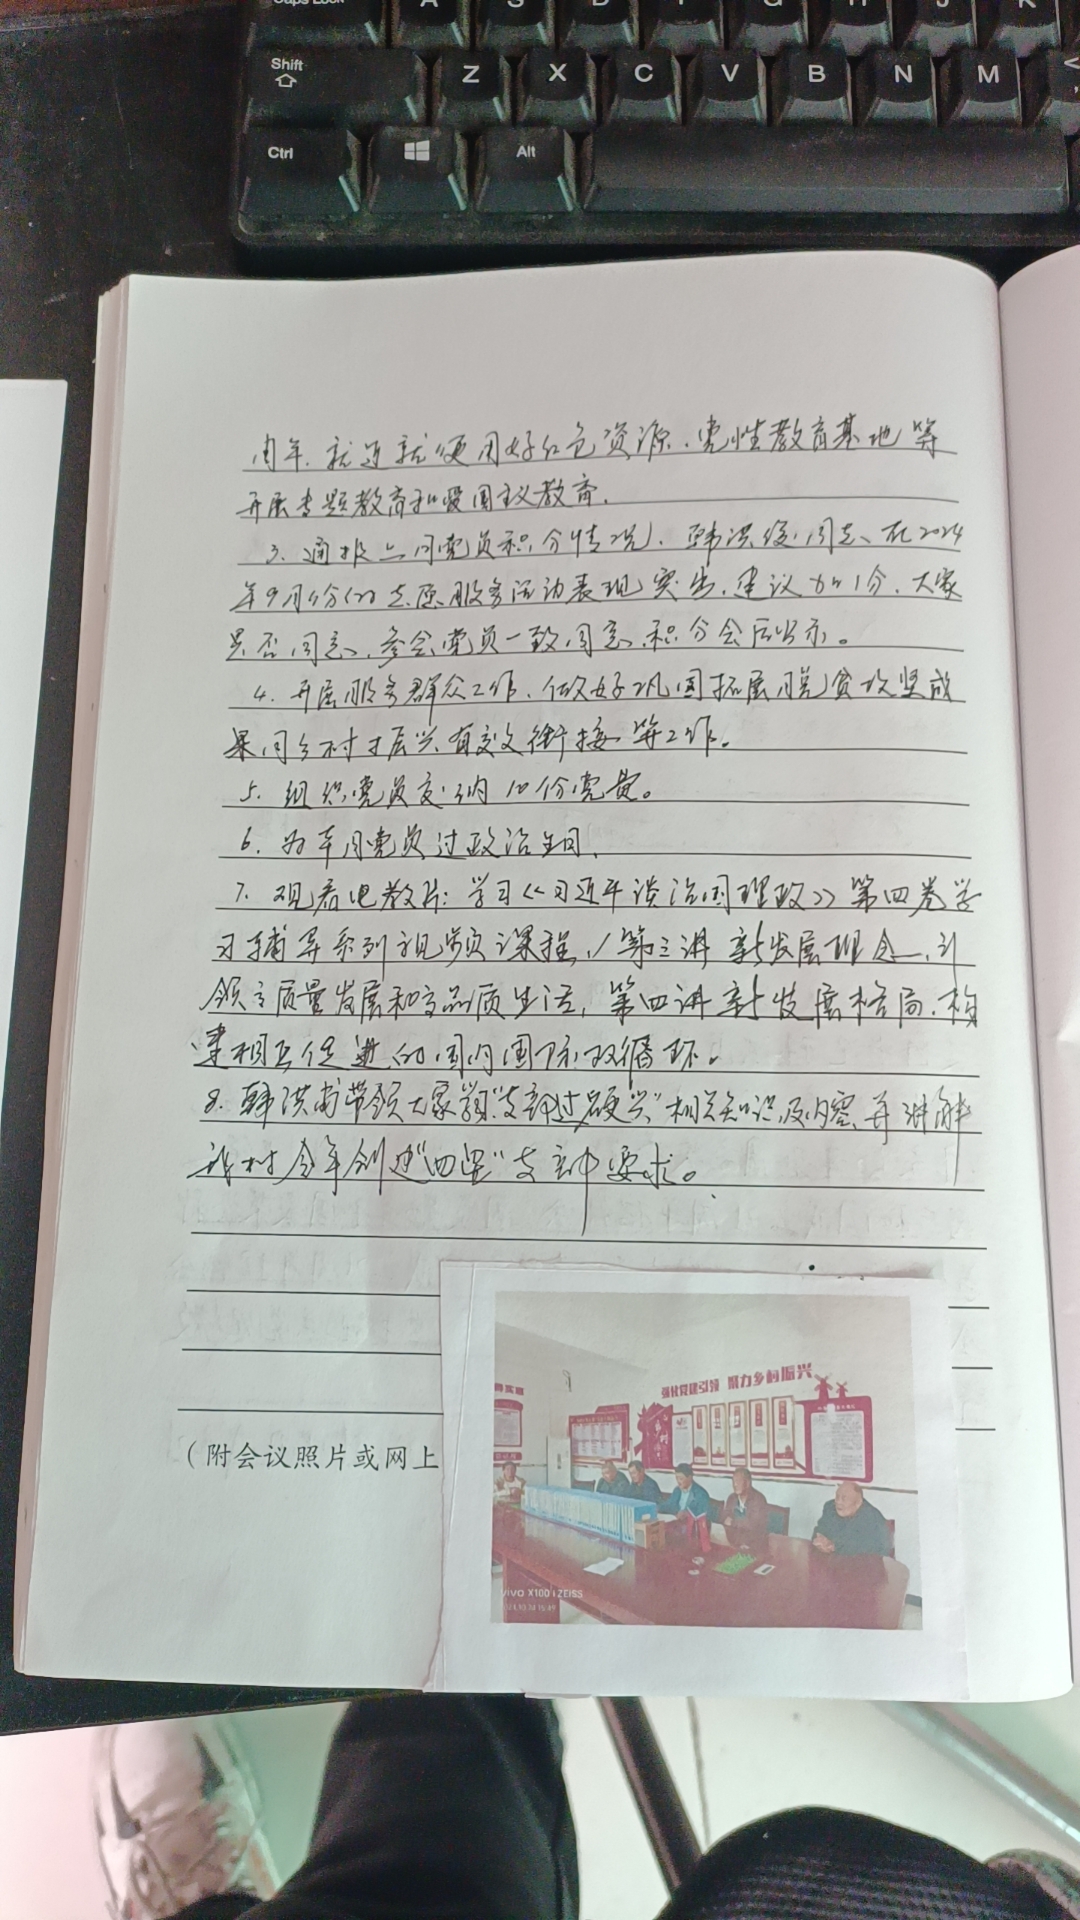 Caps Lock A S D F G H J K
Shift Z X C V B N M
Ctrl Alt
周年、就近就便用好红色资源、党性教育基地等
开展专题教育和爱国主义教育。
3、通报上月党员积分情况,韩洪俊同志、在2024
年9月份的志愿服务活动表现突出,建议加1分,大家
是否同意、参会党员一致同意、积分会后公示。
4、开展服务群众工作,做好巩固拓展脱贫攻坚成
果同乡村振兴有效衔接等工作。
5、组织党员交纳10份党费。
6、为本月党员过政治生日、
7、观看电教片:学习《习近平谈治国理政》第四卷学
习辅导系列视频课程,第三讲 新发展理念、引
领高质量发展和高品质生活,第四讲 新发展格局、构
建相互促进的国内国际双循环。
8、韩洪 带领大家学习"支部过硬 "相关知识及内容,并讲解
我村今年创建"四星"支部要求。
(附会议照片或网上
强化党建引领 聚力乡村振兴
vivo X100 | ZEISS